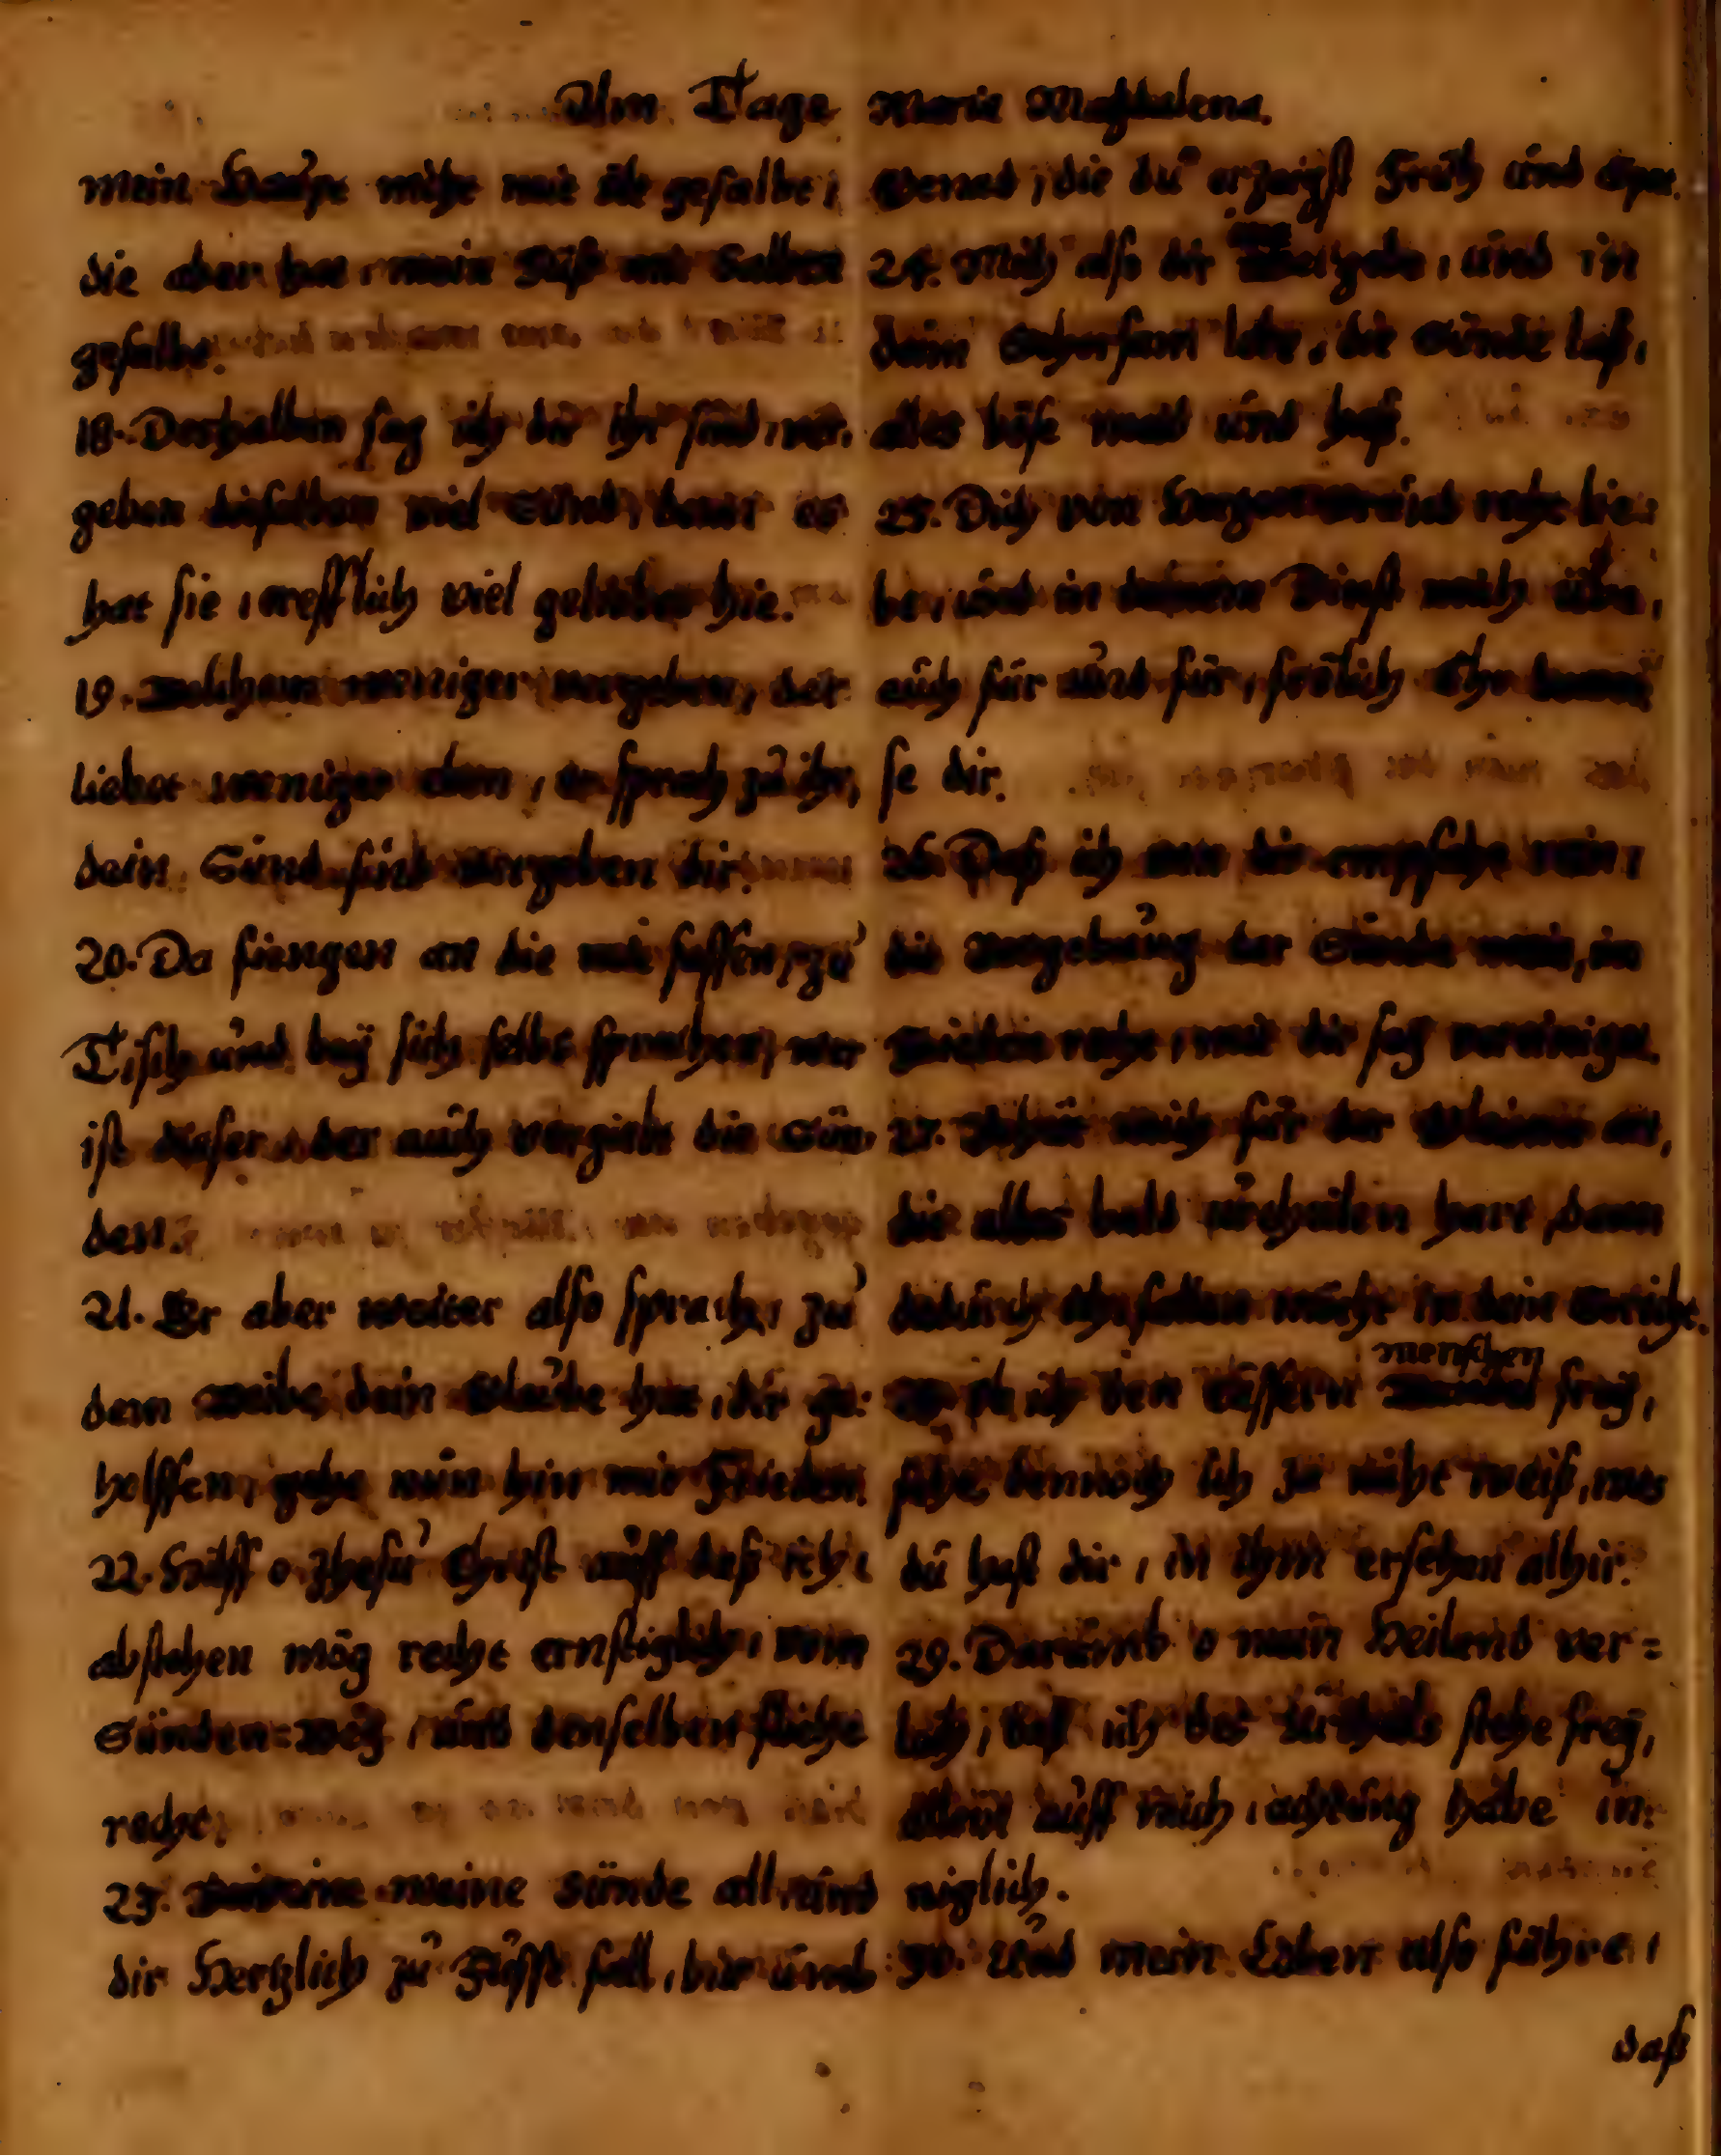 Am Tage Maria Magdalena.
mein Haupt nicht mit öle gesalbt,
die aber hat, mein Füß mit Salben
gesalbt.
18. Deshalben sag ich dir ihr sind, ver-
geben dieselben viel Sünd, denn es
hat sie, trefflich viel geliebet hie.
19. Welchem weniger vergeben, der
liebet weniger eben, er sprach zu ihr,
dein Sünd sind vergeben dir.
20. Da fiengen an die mit sassen, zu
Tisch und beÿ sich selbs sprachen, wer
ist dieser, der auch vergiebt die Sün-
den.
21. Er aber weiter also sprach, zu
dem Weibe, dein Glaube hat, dir ge-
holffen, gehe nun hin mit Frieden.
22. Hilff o Jhesu Christ auff daß ich,
abstehen mög recht ernstiglich, vom
Sünden=Weg, und denselben fliehe
recht.
23. meine Sünde all, und
dir Hertzlich zu Fusse fall, bir und
die du erzeigst Früh und Spat.
24. Mich also dir gebe, und in
deim Gehorsam lebe, die Sünde laß,
alles böse meid und haß.
25. Dich von Hertzen recht lie-
be, und in deinem Dinst mich übe,
auch für und für, frölich Ehr bewei-
se dir.
26. Daß ich von dir empfahe rein,
die Vergebung der Sünde mein, im
Frieden recht, mit dir seÿ vereiniget.
27. Behüt mich für der art,
die alles bald urtheilen hart, denn
dadurch ich fallen möcht in dein Gericht.
ich den eussern menschen freÿ,
dennoch ich ja nicht weiß, was
du hast dir, in ihm ersehen alhir.
29. Darumb o mein Heiland ver=
leih, daß ich des urtheils stehe freÿ,
allein auff mich, achtung habe in-
niglich.
30. Und mein Leben also führe,
daß